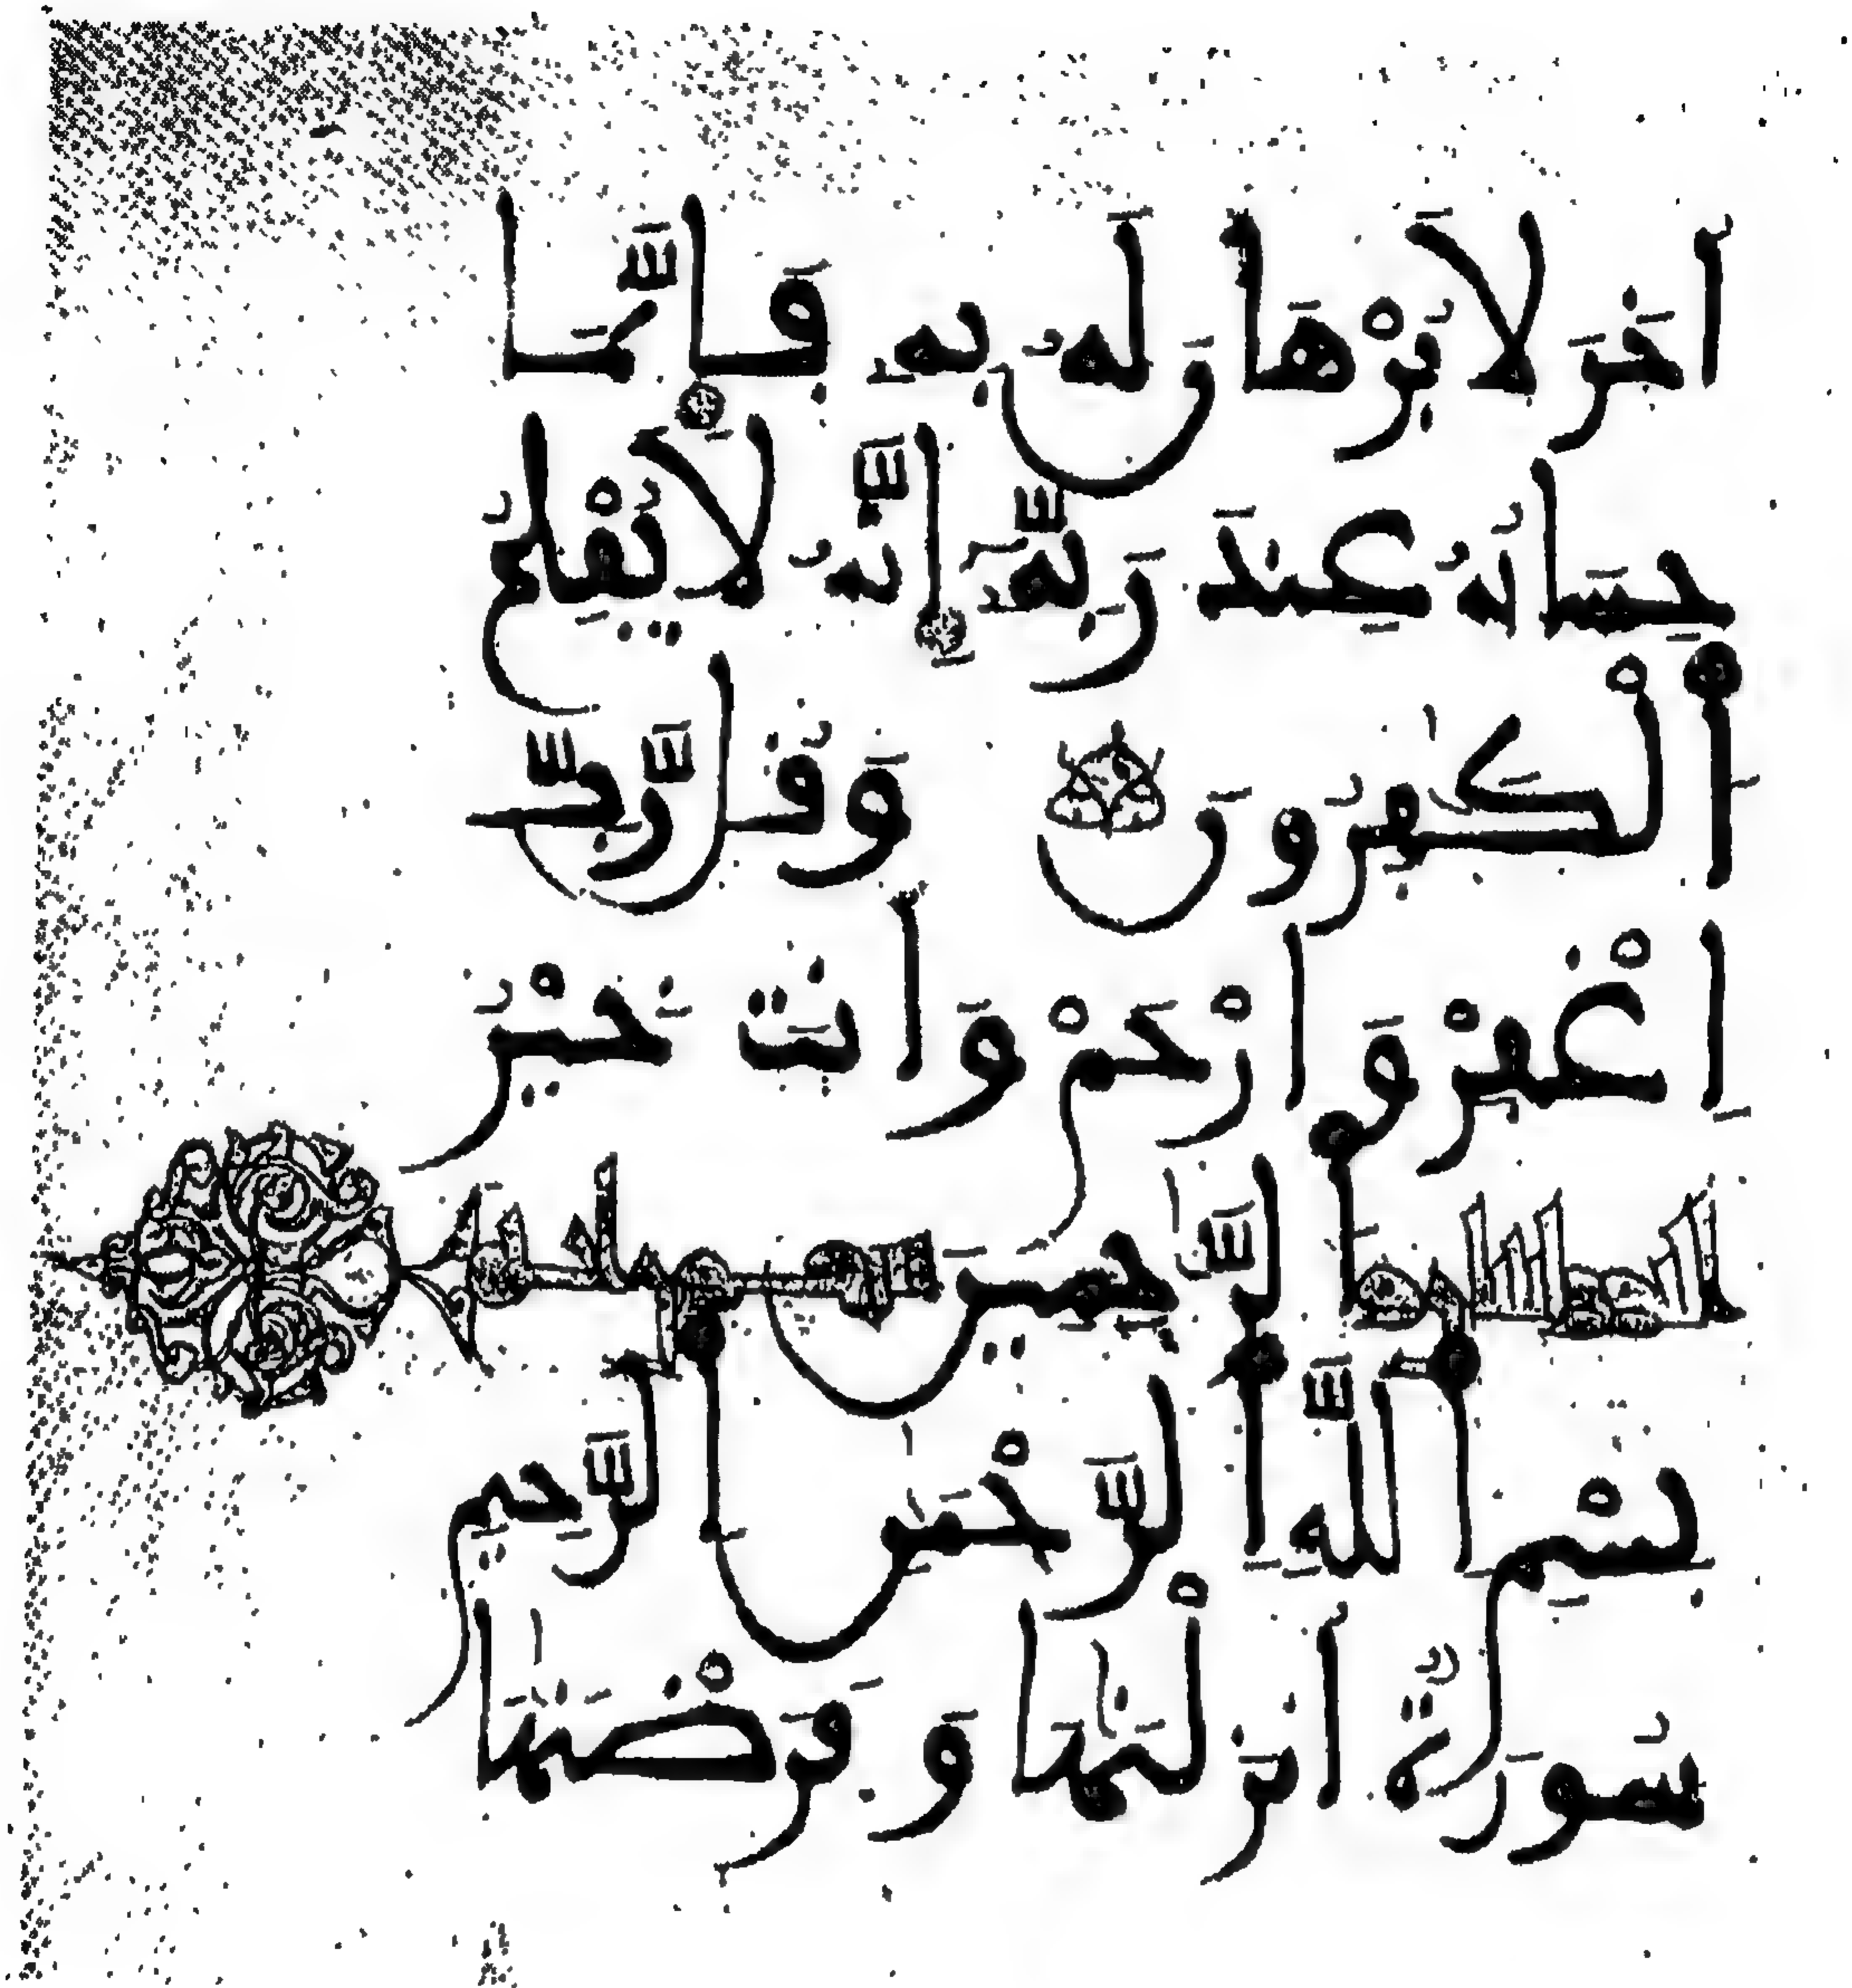 ءَاخَرَ لَا بُرْهَانَ لَهُ بِهِ فَإِنَّمَا
حِسَابُهُ عِندَ رَبِّهِ إِنَّهُ لَا يُفْلِحُ
ٱلْكَٰفِرُونَ وَقُل رَّبِّ
ٱغْفِرْ وَٱرْحَمْ وَأَنتَ خَيْرُ
ٱلرَّٰحِمِينَ
بِسْمِ ٱللَّهِ ٱلرَّحْمَٰنِ ٱلرَّحِيمِ
سُورَةٌ أَنزَلْنَٰهَا وَفَرَضْنَٰهَا